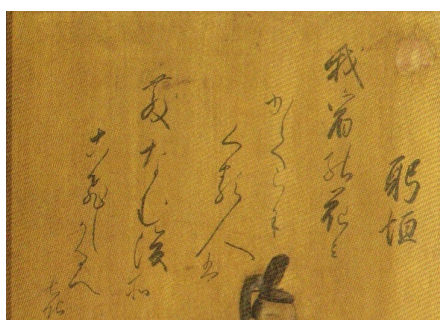 躬恒
我宿能花見
かてらに
くる人ハ
散なむ後所
こ飛しかるへ
き